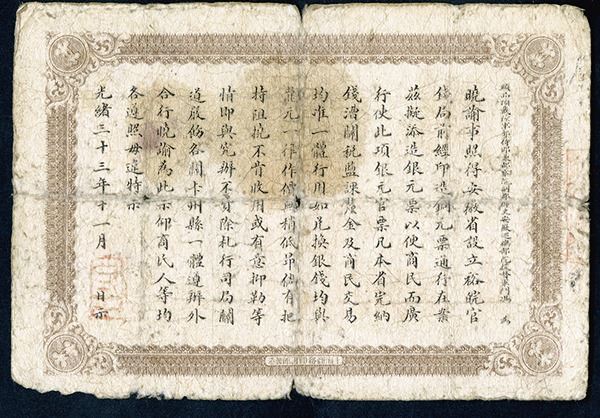 曉諭事照得安徽省設立裕皖官
錢局前經印造銅元票通行在案
茲擬添造銀元票以便商民而廣
行使此項銀元官票凡本省完納
錢漕關稅鹽課釐金及商民交易
均准一體行用如兌換銀錢均與
龍元一律作價無稍低昂倘有把
持阻撓不肯收用或有意抑勒等
情即與究辦不貸除札行司局關
道飭各關卡州縣一體遵辦外
合行曉諭為此示仰商民人等均
各遵照毋違特示
光緒三十三年十一月 日示